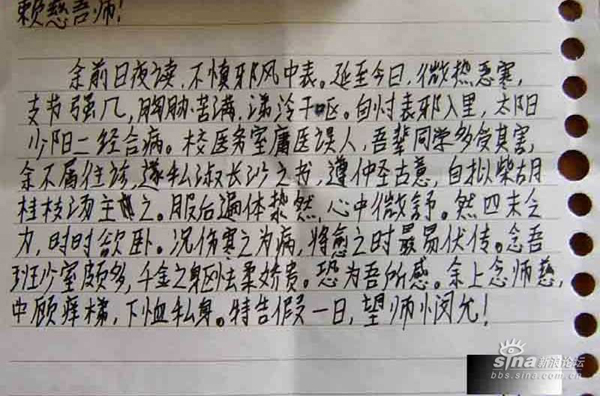 赖慈吾师!
余前日夜读，不慎邪风中表。延至今日，微热恶寒，
支节强几，胸胁苦满，涕泠干呕。自忖表邪入里，太阳
少阳二经合病。校医务室庸医误人，吾辈同学多受其害，
余不屑往诊，遂私淑长沙之书，遵仲圣古意，自拟柴胡
桂枝汤主之。服后遍体漐然，心中微舒。然四末乏
力，时时欲卧。况伤寒之为病，将愈之时最易伏传。念吾
班少室颇多，千金之身四怯柔娇贵。恐为吾所感。余上念师慈，
中顾痒梯，下恤私身。特告假一日，望师悯允!
sina 新浪论坛
bbs.sina.com.cn